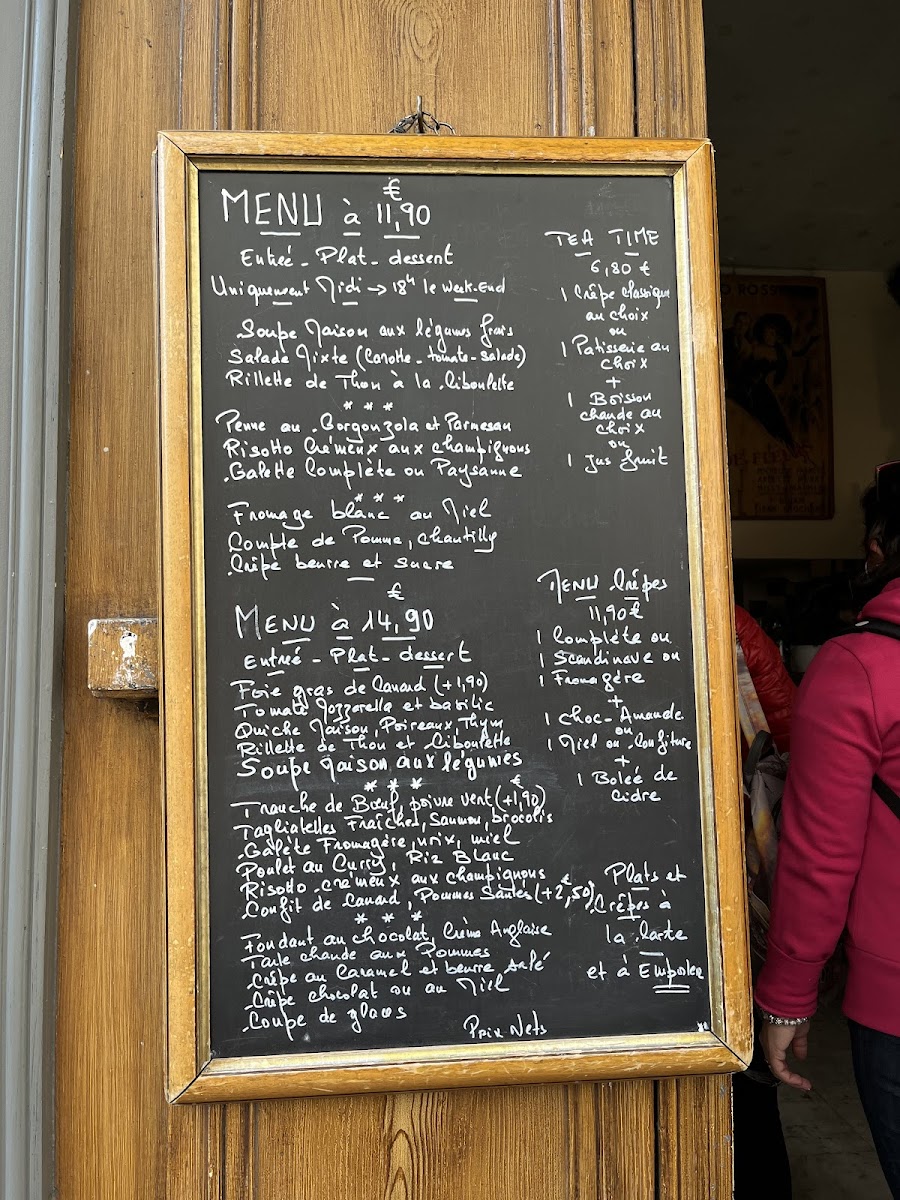 MENU à 11,90 €
Entreé - Plat - dessert
Uniquement Midi → 18h le week-End
Soupe Maison aux légumes frais
Salade Mixte (Carotte - tomate - salade)
Rillette de Thon à la Ciboulette
* * *
Penne au Gorgonzola et Parmesan
Risotto Crémeux aux champignons
Galette Complète ou Paysanne
* * *
Fromage blanc au Miel
Compte de Pomme, chantilly
Crêpe beurre et sucre
MENU à 14,90 €
Entreé - Plat - dessert
Foie gras de Canard (+1,90)
Tomate Mozzarella et basilic
Quiche Maison, Poireaux, Thym
Rillette de Thon et Ciboulette
Soupe Maison aux légumes
* * *
Tranche de Bœuf, poivre vert (+1,90) €
Tagliatelles Fraîches, Saumon, brocolis
Galète Fromagère, noix, miel
Poulet au Curry, Riz Blanc
Risotto crémeux aux champignons
Confit de Canard, Pommes Sautés (+2,50) €
* * *
Fondant au chocolat, Crème Anglaise
Tarte chaude aux Pommes
Crêpe au Caramel et beurre salé
Crêpe chocolat ou au Miel
Coupe de glaces
Prix Nets
TEA TIME
6,80 €
1 Crêpe classique
au choix
ou
1 Patisserie au
choix
+
1 Boisson
chaude au
choix
ou
1 Jus fruit
MENU Crêpes
11,90 €
1 Complète ou
1 Scandinave ou
1 Fromagère
+
1 choc-Amande
ou
1 Miel ou Confiture
+
1 Boleé de
Cidre
Plats et
Crêpes à
la Carte
et à Emporter